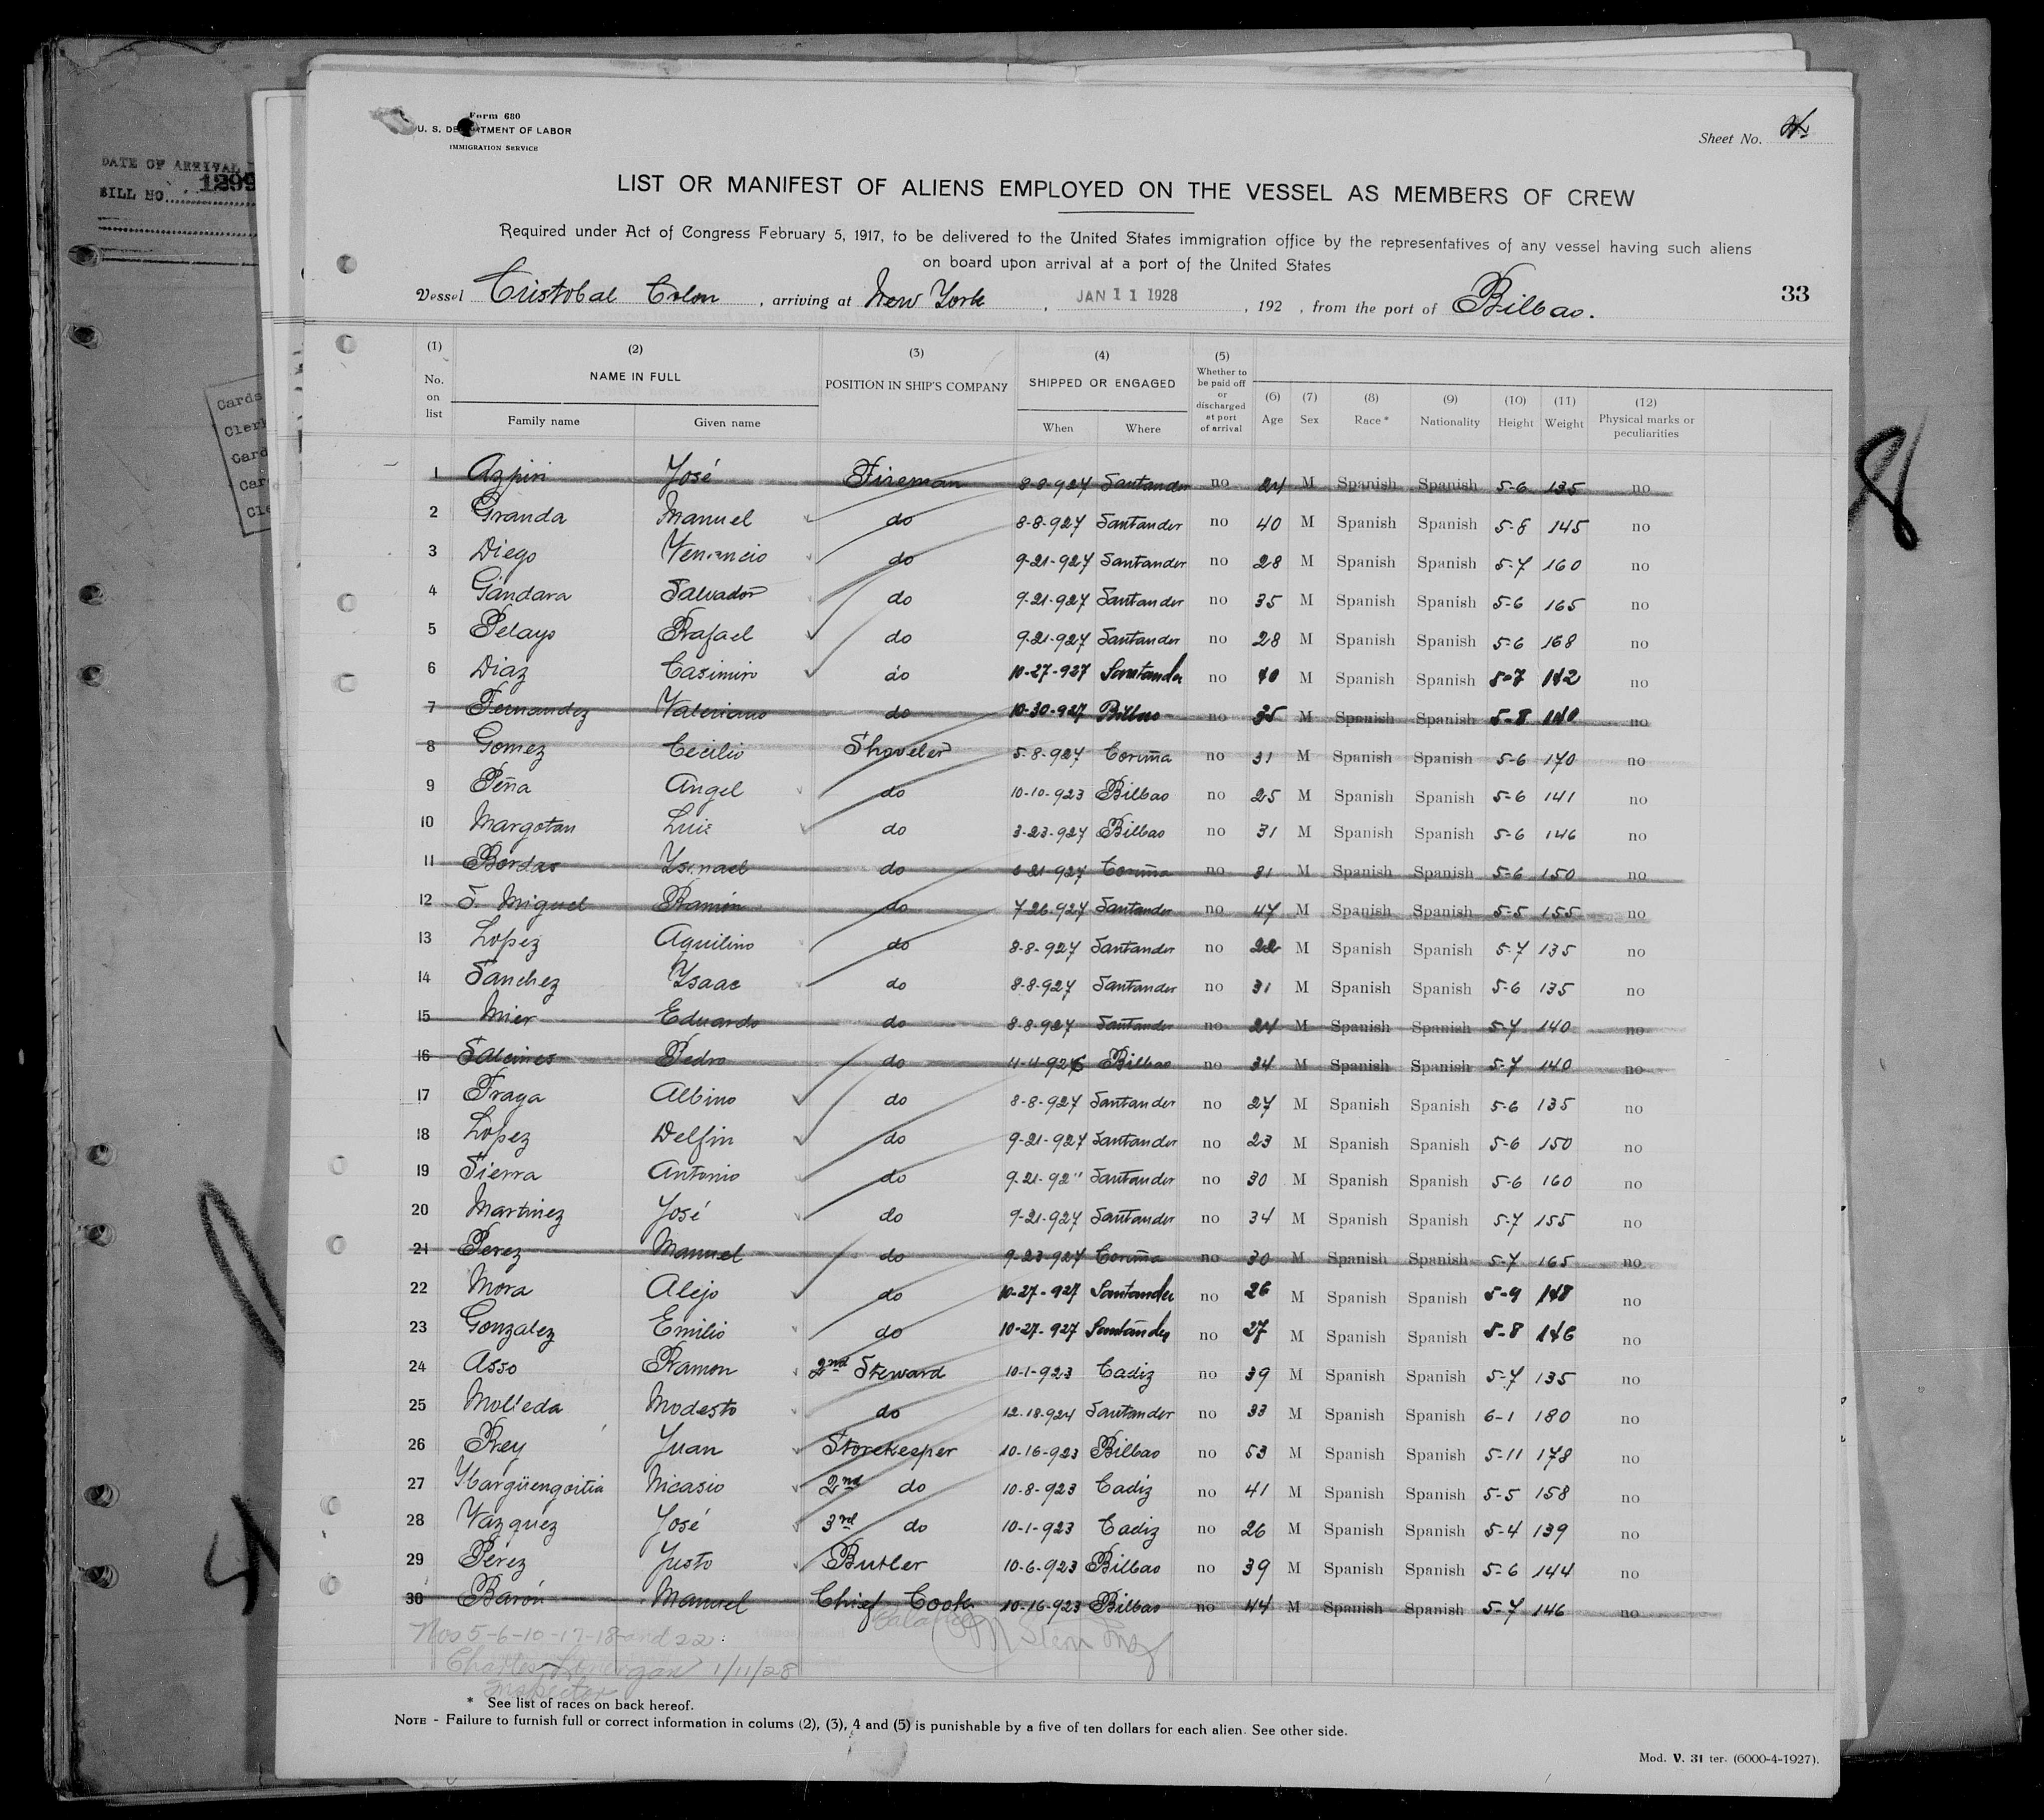 DATE OF ARRIVAL
BILL NO. 1299
Cards
Clerk
Card
Car
Cle
Form 680
U. S. DEPARTMENT OF LABOR
IMMIGRATION SERVICE
Sheet No.
LIST OR MANIFEST OF ALIENS EMPLOYED ON THE VESSEL AS MEMBERS OF CREW
Required under Act of Congress February 5, 1917, to be delivered to the United States immigration office by the representatives of any vessel having such aliens
on board upon arrival at a port of the United States
Vessel Cristobal Colon, arriving at New York, JAN 11 1928, 192 , from the port of Bilbao.
33
(1) No. on list (2) NAME IN FULL Family name Given name (3) POSITION IN SHIP'S COMPANY (4) SHIPPED OR ENGAGED When Where (5) Whether to be paid off or discharged at port of arrival (6) Age (7) Sex (8) Race* (9) Nationality (10) Height (11) Weight (12) Physical marks or peculiarities
1 Azpiri José Fireman 8-8-927 Santander no 24 M Spanish Spanish 5-6 135 no
2 Granda Manuel do 8-8-927 Santander no 40 M Spanish Spanish 5-8 145 no
3 Diego Venancio do 9-21-927 Santander no 28 M Spanish Spanish 5-7 160 no
4 Gándara Salvador do 9-21-927 Santander no 35 M Spanish Spanish 5-6 165 no
5 Pelayo Rafael do 9-21-927 Santander no 28 M Spanish Spanish 5-6 168 no
6 Diaz Casimiro do 10-27-927 Santander no 40 M Spanish Spanish 5-7 142 no
7 Fernandez Valeriano do 10-30-927 Bilbao no 35 M Spanish Spanish 5-8 140 no
8 Gomez Cecilio Shoveler 5-8-927 Coruña no 31 M Spanish Spanish 5-6 170 no
9 Peña Angel do 10-10-923 Bilbao no 25 M Spanish Spanish 5-6 141 no
10 Margotan Luis do 3-23-927 Bilbao no 31 M Spanish Spanish 5-6 146 no
11 Bordas Ysmael do 6-21-927 Coruña no 31 M Spanish Spanish 5-6 150 no
12 S. Miguel Ramón do 7-26-927 Santander no 47 M Spanish Spanish 5-5 155 no
13 Lopez Aquilino do 8-8-927 Santander no 22 M Spanish Spanish 5-7 135 no
14 Sanchez Ysaac do 8-8-927 Santander no 31 M Spanish Spanish 5-6 135 no
15 Mier Eduardo do 8-8-927 Santander no 24 M Spanish Spanish 5-7 140 no
16 Salcines Pedro do 11-4-926 Bilbao no 34 M Spanish Spanish 5-7 140 no
17 Fraga Albino do 8-8-927 Santander no 27 M Spanish Spanish 5-6 135 no
18 Lopez Delfin do 9-21-927 Santander no 23 M Spanish Spanish 5-6 150 no
19 Sierra Antonio do 9-21-92" Santander no 30 M Spanish Spanish 5-6 160 no
20 Martinez José do 9-21-927 Santander no 34 M Spanish Spanish 5-7 155 no
21 Perez Manuel do 9-23-927 Coruña no 30 M Spanish Spanish 5-7 165 no
22 Mora Alejo do 10-27-927 Santander no 26 M Spanish Spanish 5-9 148 no
23 Gonzalez Emilio do 10-27-927 Santander no 27 M Spanish Spanish 5-8 146 no
24 Asso Ramon 2nd Steward 10-1-923 Cadiz no 39 M Spanish Spanish 5-7 135 no
25 Molleda Modesto do 12-18-924 Santander no 33 M Spanish Spanish 6-1 180 no
26 Rey Juan Storekeeper 10-16-923 Bilbao no 53 M Spanish Spanish 5-11 178 no
27 Ybargüengoitia Nicasio 2nd do 10-8-923 Cadiz no 41 M Spanish Spanish 5-5 158 no
28 Vazquez José 3rd do 10-1-923 Cadiz no 26 M Spanish Spanish 5-4 139 no
29 Pérez Justo Butler 10-6-923 Bilbao no 39 M Spanish Spanish 5-6 144 no
30 Barón Manuel Chief Cook 10-16-923 Bilbao no 44 M Spanish Spanish 5-7 146 no
Nos 5-6-10-17-18 and 22:
Charles 1/11/28
Inspector
* See list of races on back hereof.
NOTE - Failure to furnish full or correct information in colums (2), (3), 4 and (5) is punishable by a five of ten dollars for each alien. See other side.
Mod. V. 31 ter. (6000-4-1927).
8